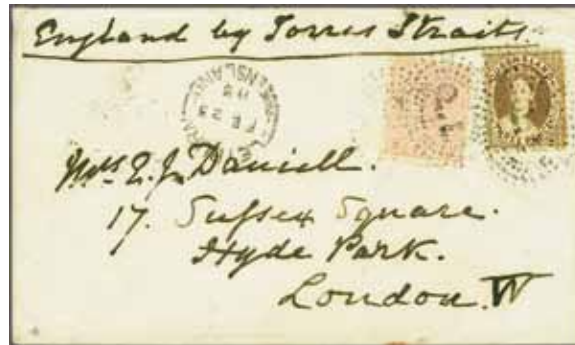 England by Torres Straits.
QUEENSLAND
FE 23
Mrs E. J. Daniell.
17. Sussex Square.
Hyde Park.
London. W